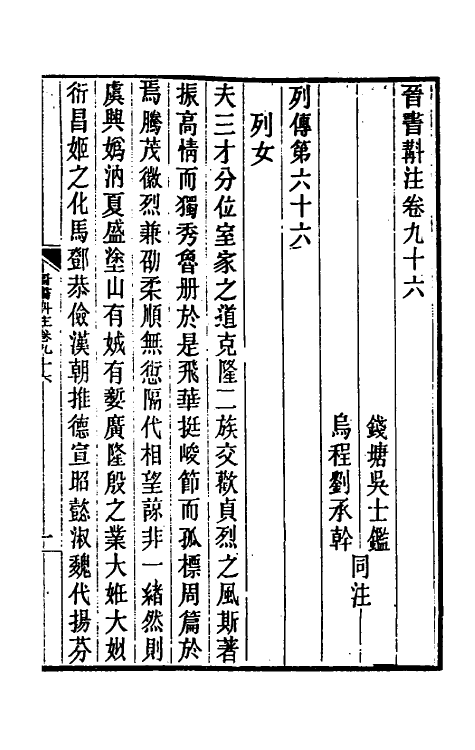 晉書斠注卷九十六
錢塘吳士鑑
烏程劉承幹
同注
列傳第六十六
列女
夫三才分位室家之道克隆二族交歡貞烈之風斯著
振高情而獨秀魯册於是飛華挺峻節而孤標周篇於
焉騰茂徽烈兼劭柔順無愆隔代相望諒非一緒然則
虞興嬀汭夏盛塗山有娀有㜪廣隆殷之業大妊大姒
衍昌姬之化馬鄧恭儉漢朝推德宣昭懿淑魏代揚芬
晉書斠注卷九十六
一